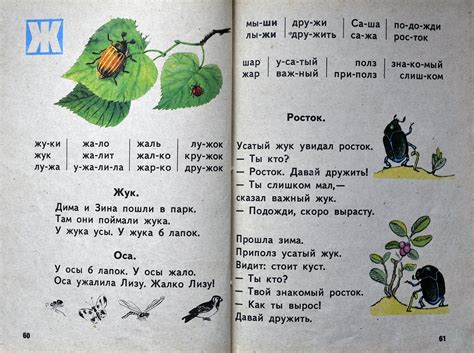 Ж
жу-ки жа-ло жаль лу-жок
жук жа-лит жал-ко кру-жок
лу-жа у-жа-ли-ла жар-ко дру-жок
Жук.
Дима и Зина пошли в парк.
Там они поймали жука.
У жука усы. У жука 6 лапок.
Оса.
У осы 6 лапок. У осы жало.
Оса ужалила Лизу. Жалко Лизу!
60
мы-ши дру-жи Са-ша по-до-жди
лы-жи дру-жить са-жа рос-ток
шар у-са-тый полз зна-ко-мый
жар важ-ный при-полз слиш-ком
Росток.
Усатый жук увидал росток.
— Ты кто?
— Росток. Давай дружить!
— Ты слишком мал,—
сказал важный жук.
— Подожди, скоро вырасту.
Прошла зима.
Приполз усатый жук.
Видит: стоит куст.
— Ты кто?
— Твой знакомый росток.
— Как ты вырос!
Давай дружить.
61